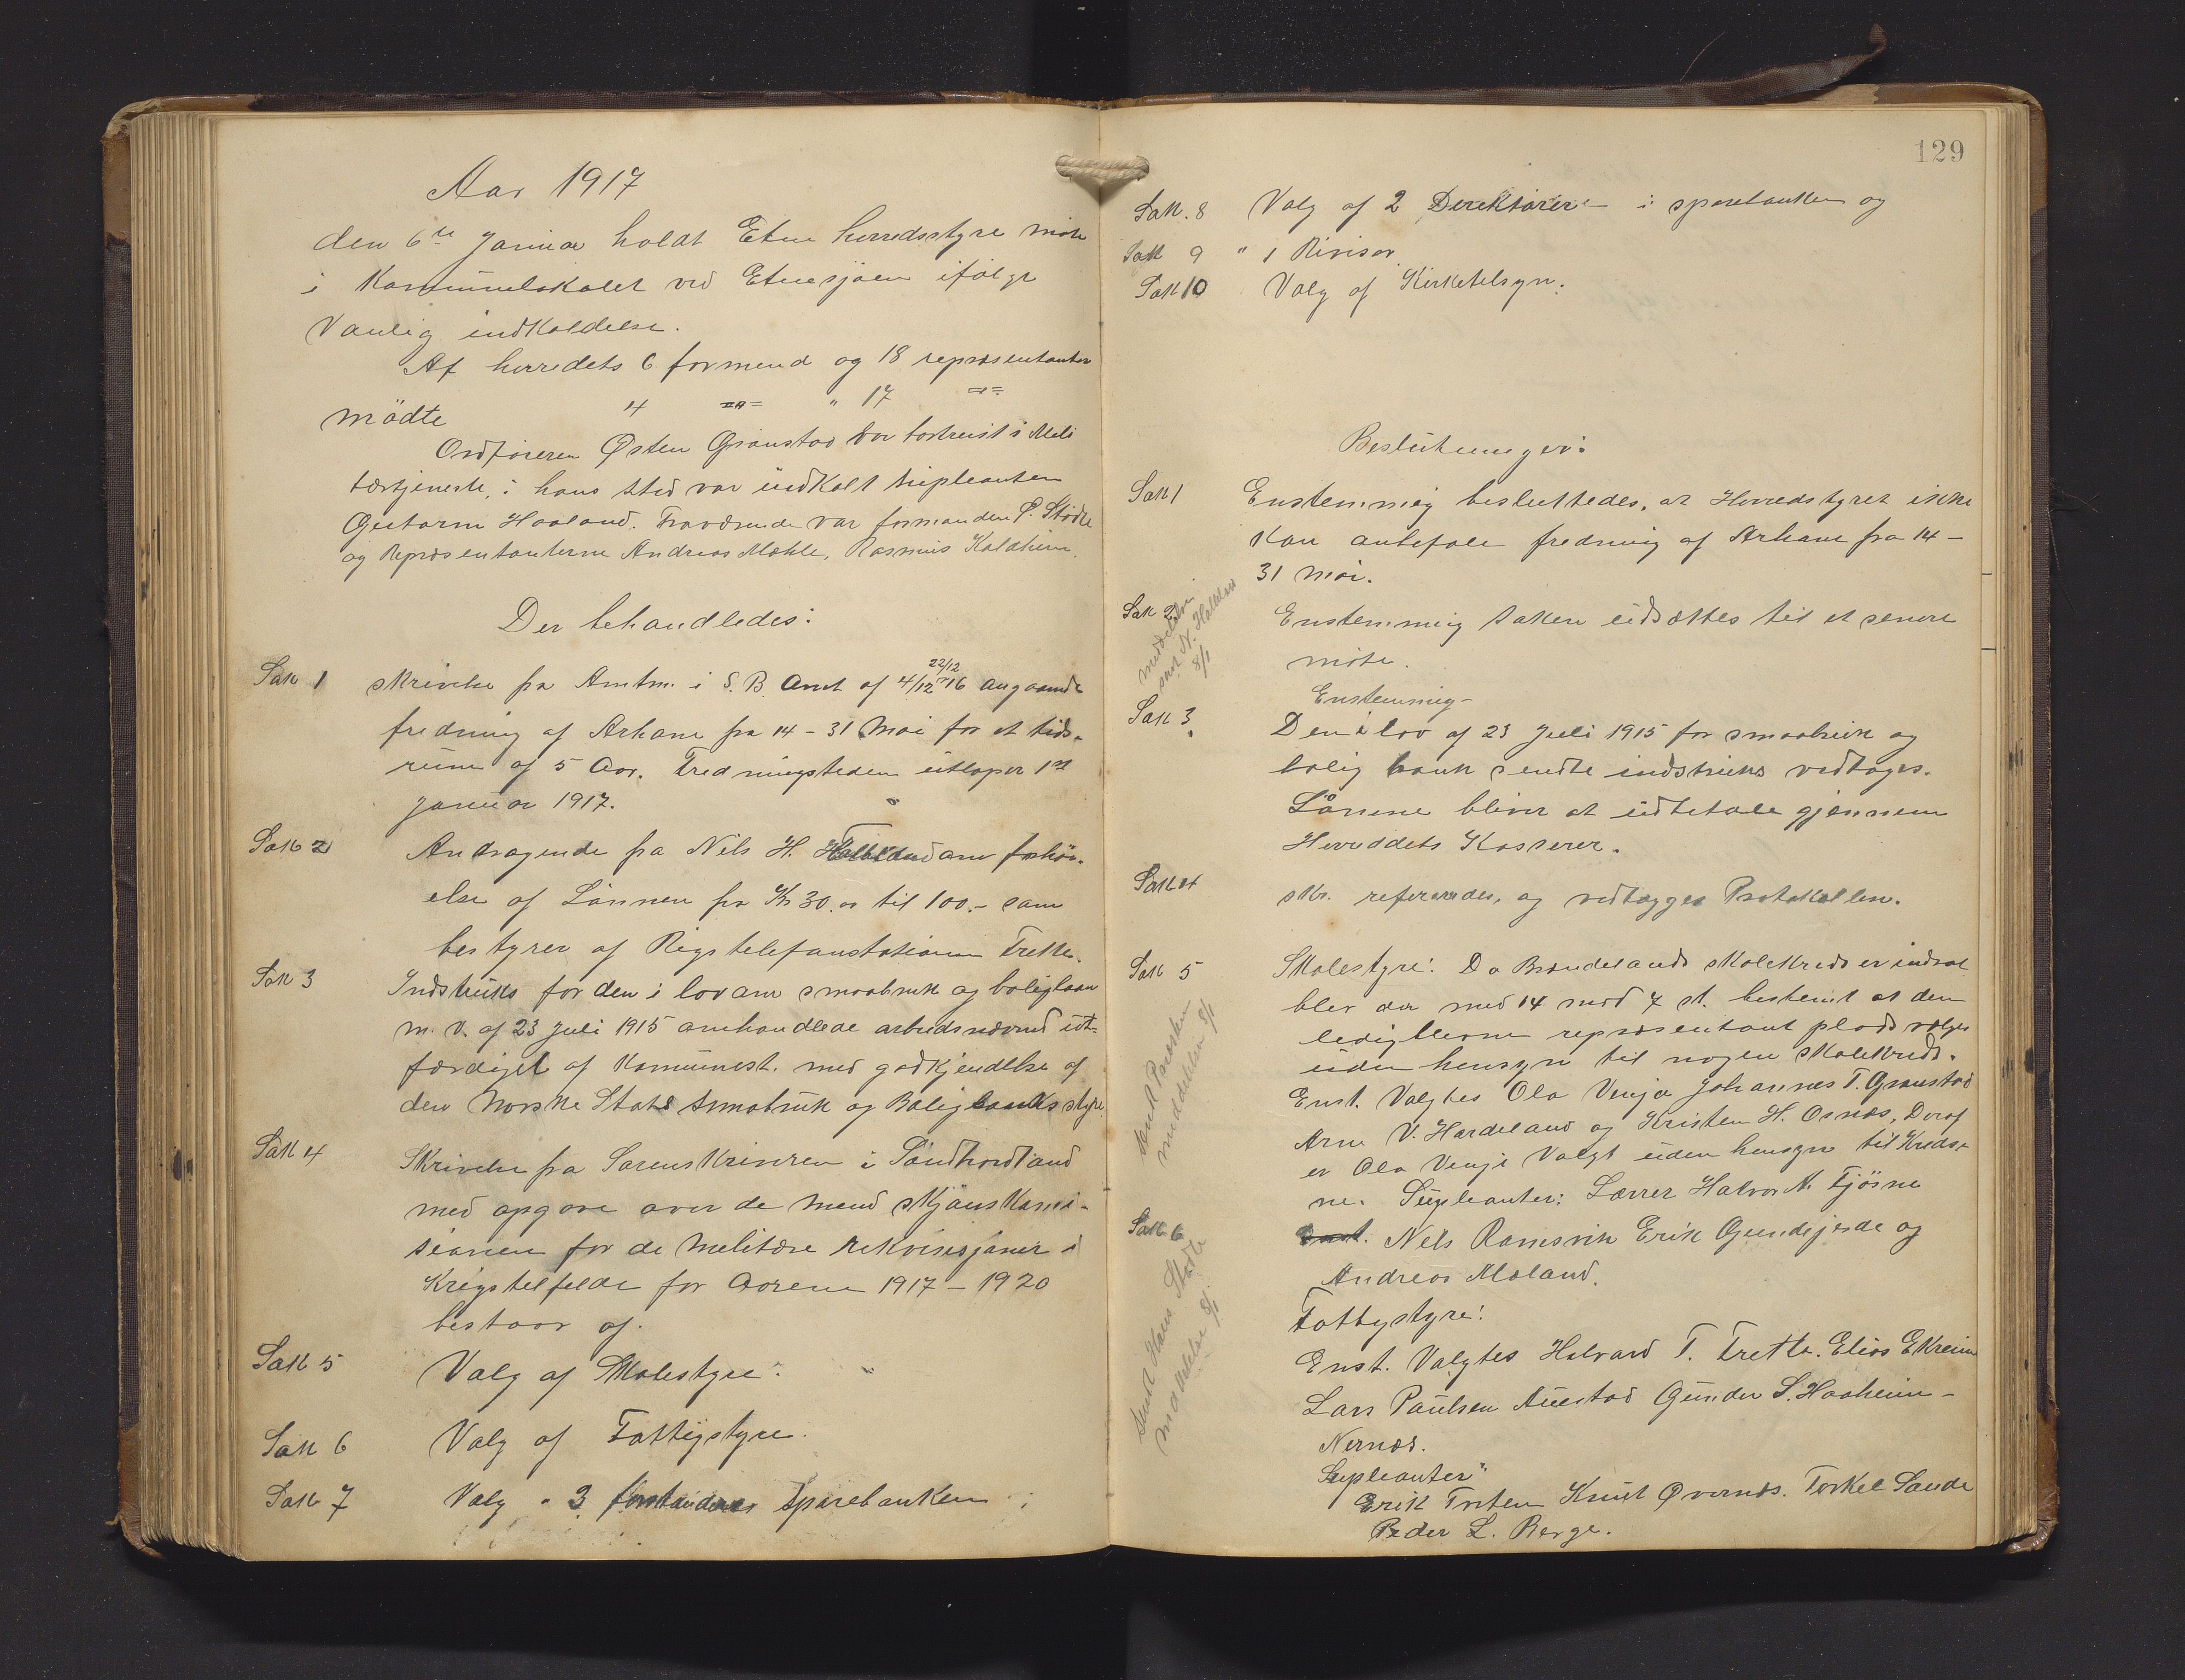 Aar 1917
den 6te Januar holdt Etne herredsstyre møte
i Kommunelokalet ved Etnesjøen ifølge
Vanlig indkaldelse.
Af herredets 6 formænd og 18 repræsentanter
mødte 4 -"- " 17 -"-
Ordføreren Østen Grønstad var bortreist i Meli
tærtjeneste, i hans sted var indkalt supleanten
Gutorm Haaland. Fraværende var formanden P. Stødle
og Repræsentanterne Andreas Mæhle, Rasmus Kaldheim.
Der behandledes:
Sak 1 skrivelse fra Amtm. i S. B. Amt af 4/12 22/12 16 angaaende
fredning af Arhane fra 14 - 31 Mai for et tids-
rum af 5 Aar. Fredningstiden utløper 1st
Januar 1917.
Sak 2 Andragende fra Nils H. om forhøi-
else af Lønnen fra Kr 30.00 til 100.- som
bestyrer af Rigstelefonstationen Frette.
Sak 3 Indstruks for den i lov om smaabruk og boliglaan
m. v. af 23 Juli 1915 omhandlede arbeidsnævnd ut-
færdiget af Kommunest. med godkjendelse af
den Norske Stats Smabruk og Boligbanks styre
Sak 4 Skrivelse fra Sorenskriveren i Søndhordland
med opgave over de mend skjønskomi-
sionen for de Melitære rekvisisjoner i
Krigstilfelde for Aarene 1917 - 1920
bestaar af.
Sak 5 Valg af Skolestyre.
Sak 6 Valg af Fattigstyre.
Sak 7 Valg " 3 forstandere Sparebanken
129
Sak. 8 Valg af 2 Direktører i sparebanken og
Sak 9 " 1 Revisor
Sak 10 Valg af Kirketilsyn.
Beslutninger:
Sak 1 Enstemmig besluttedes, at Herredstyret ikke
kan anbefale fredning af Arhane fra 14 -
31 mai.
Sak 2 Enstemmig saken utsættes til et senere
møte.
meddelelse
N. H. 8/1
Enstemmig -
Sak 3. Den i lov af 23 Juli 1915 for smaabruk og
bolig bank sendte indstruks vedtages.
Lånene bliver at utbetale gjennem
Herreddets Kasserer.
Sak 4 skr. refereredes, og vedlægges Protokollen.
Sak 5 Skolestyre: Da Brændelands skolekreds er
blev der med 14 mod 7 st. bestemt at den
repræsentant plads vælges
uden hensyn til nogen skolekreds.
Enst. Valgtes Ola Vinje Johannes T. Grønstad
Arne V. Hardeland og Kristen H. Osnes, Deraf
er Ola Vinje Valgt uden hensyn til Kredse-
ne. Supleanter: Lærer Halvor N. Fjøsne
meddelelse 8/1
Sak 6 Enst. Nels Ramsvik Erik Gundegjerde og
Andreas Moland.
Fattigstyre:
Enst. Valgtes Halvard T. Frette. Elias Ekreim
Lars Paulsen Auestad Gunder S. Haaheim -
Nernes.
Sendt Hans Stødle
meddelelse 8/1
Supleanter"
Erik Tveten Knut Øvernes. Torkel Sande
Peder L. Berge.